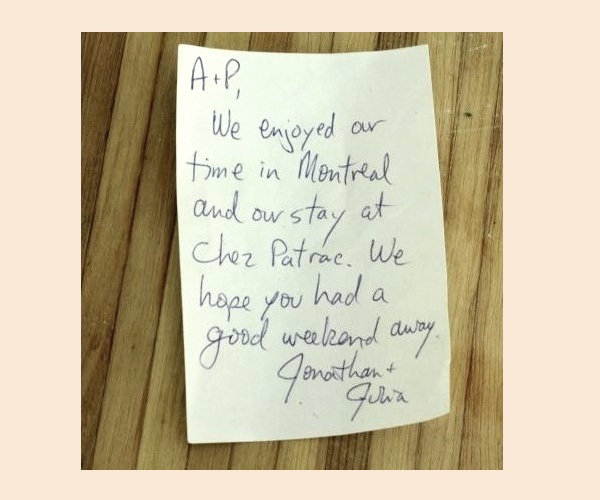 A+P,
We enjoyed our
time in Montreal
and our stay at
Chez Patrac. We
hope you had a
good weekend away.
Jonathan+
Julia